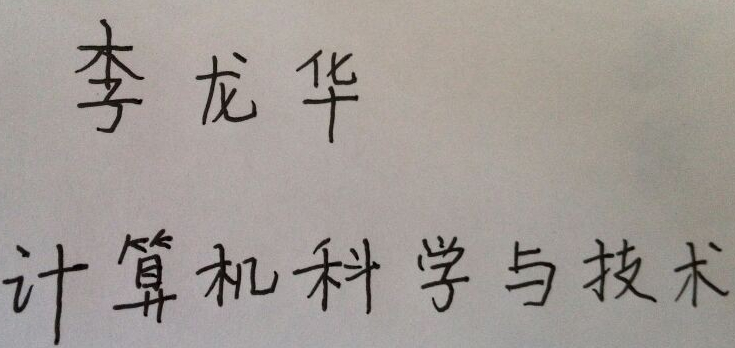 李龙华
计算机科学与技术